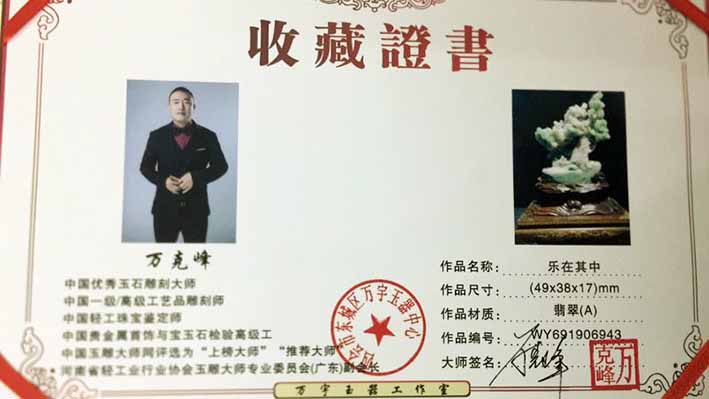 收藏證書
万克峰
中国优秀玉石雕刻大师
中国一级/高级工艺品雕刻师
中国轻工珠宝鉴定师
中国贵金属首饰与宝玉石检验高级工
中国玉雕大师网评选为“上榜大师”“推荐大师”
河南省轻工业行业协会玉雕大师专业委员会(广东)副会长
四会市东城区万宇玉器中心
作品名称: 乐在其中
作品尺寸: (49x38x17)mm
作品材质: 翡翠(A)
作品编号: WY691906943
大师签名:
万克峰
万宇玉器工作室